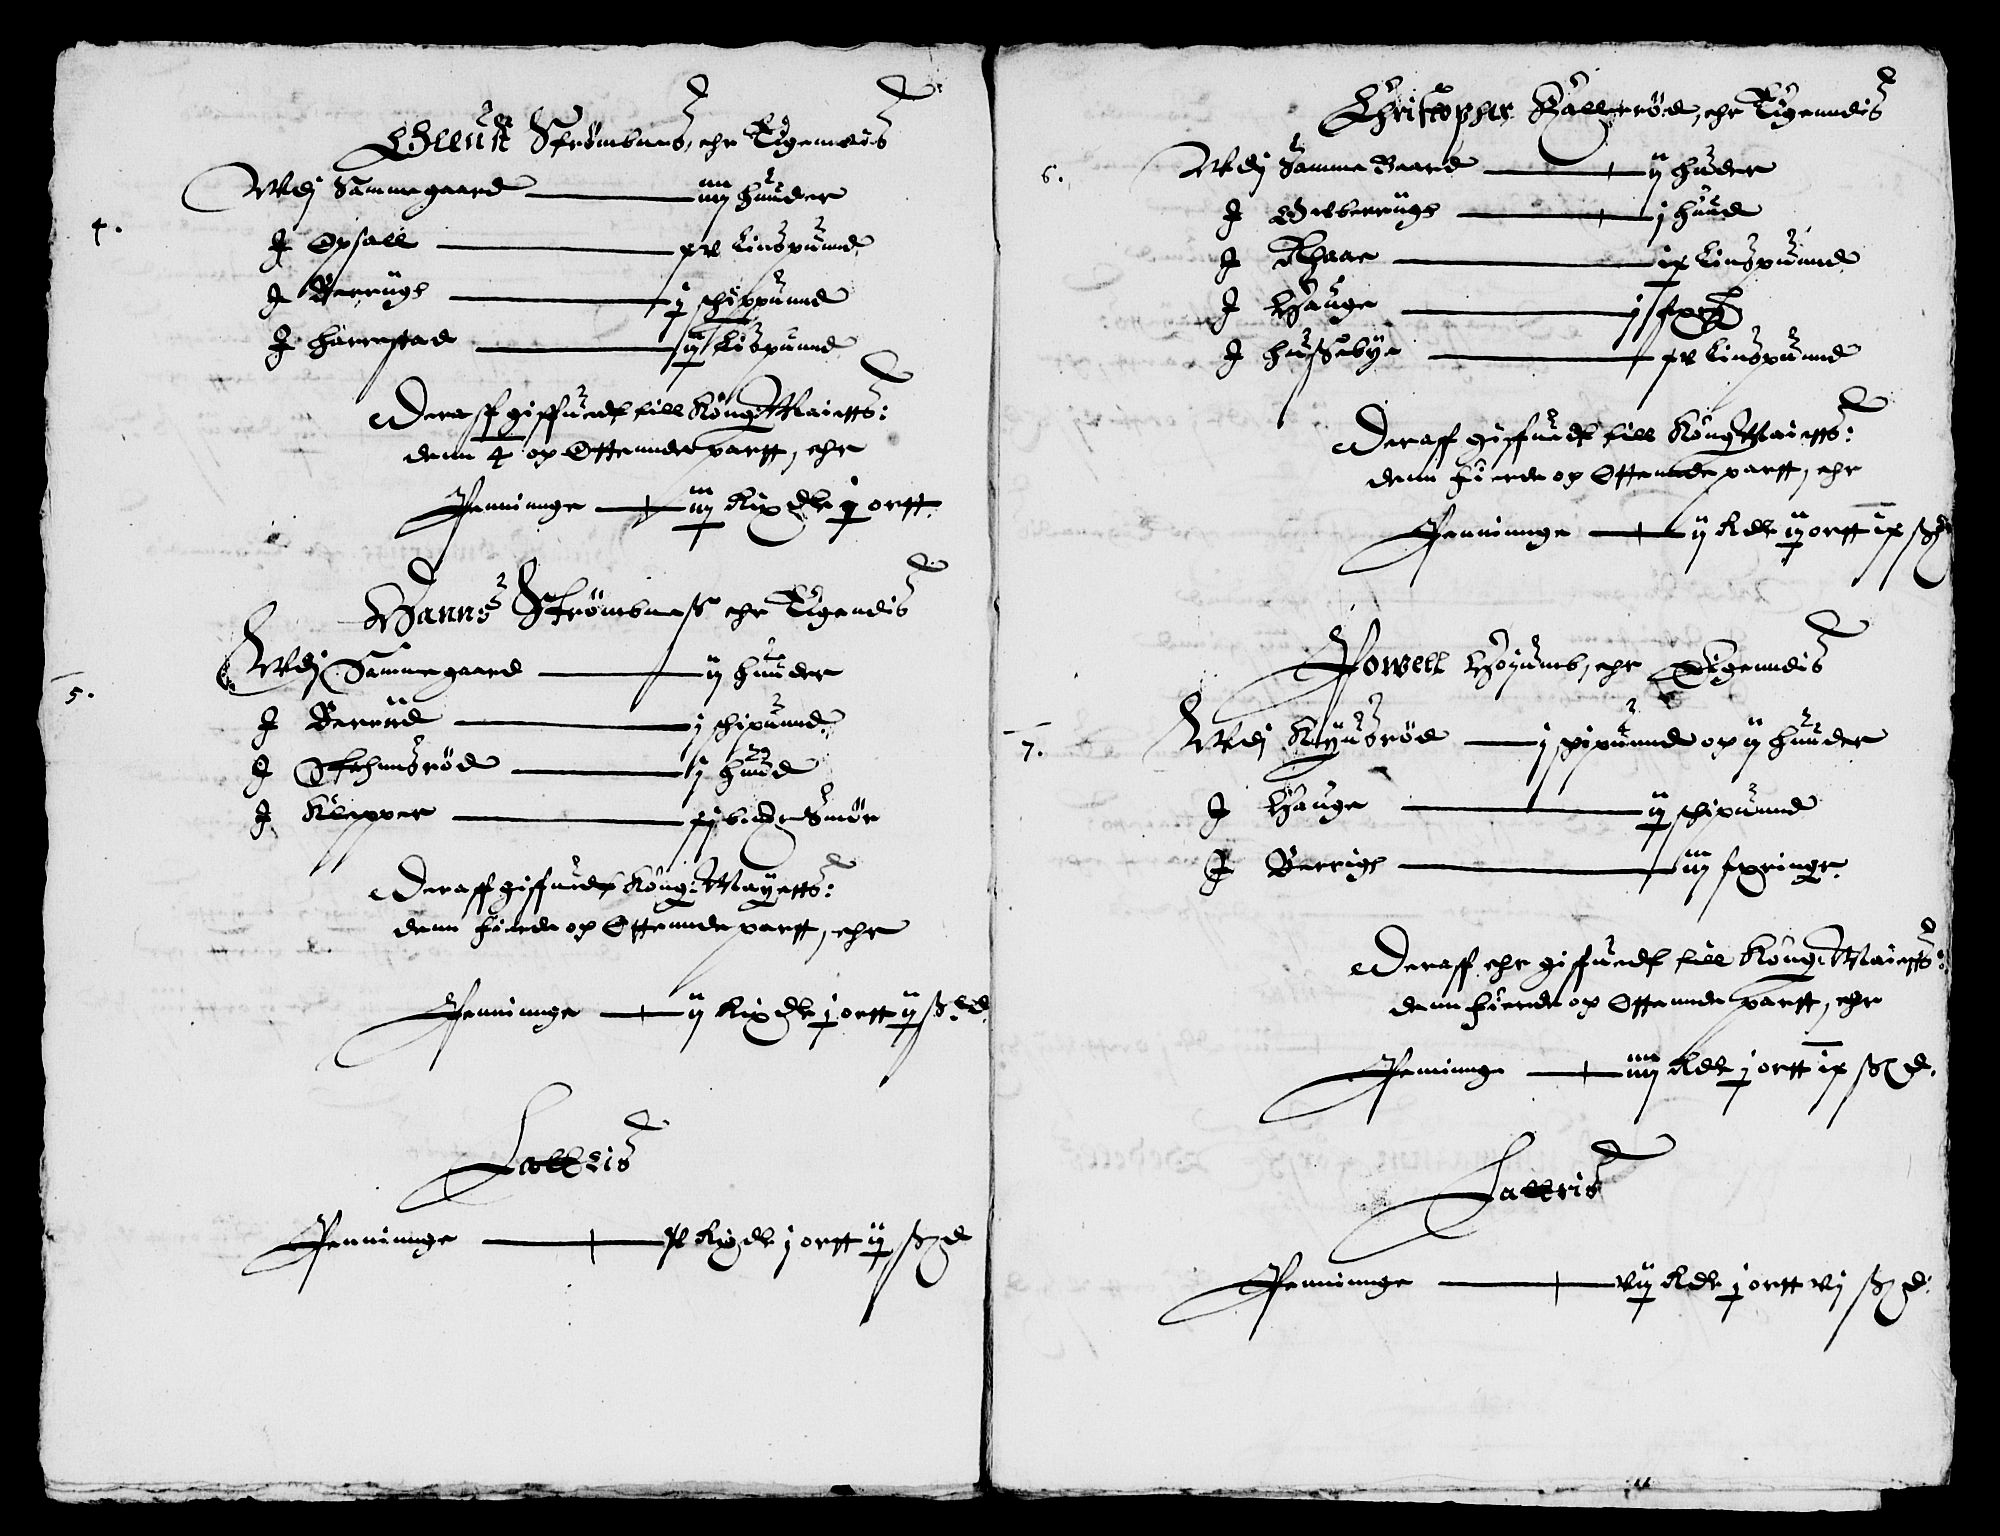 Gleuff Strömbnes, ehr Eigenndis
4.
Wdj Samme gaard — iiij huuder
J Opsall — xv Lindspuund
J Berrugh — j schippuund
J Harrestad — ij Lispuund
Deraff giffuedt till Kong: Maietts:
denn 4 op Ottennde partt, ehr
Penninnge — iij Rixdlr j ortt
Hanns Strömbneß ehr Eigendis
5.
Wdj Samme gaard — ij huuder
J Berrüd — j schipuund
J Stehnsröd — j huud
J Klepper — bud Smör
Deraff giffuedt Kong: Mayetts:
denn Fierde op Ottennde partt, ehr
Penninnge — ij Rixdlr j ortt ij ß d
Latteris
Penninnge — Rixdlr j ortt ij ß d
Christopher Kallerröd, ehr Eigenndis
6.
Wdj Samme Gaard — ij huder
J Berrugh — j huud
J Haae — ix Lindspuund
J Hauge — j
J Hußebye — xv Lindspuund
Deraff giffuedt till Kong Maietts:
denn Fierde op Ottende partt, ehr
Penninnge — ij Rdlr ij ortt ix ß
Powell Höyumb, ehr Eigenndis
7.
Wdj Kijusröd — j spipuund op ij huuder
J Hauge — ij schipuund
J Berrigh — iij fxringe
Deraff ehr giffuedt till Kong: Maietts:
denn fierde op Ottennde partt, ehr
Penninnge — iiij Rdlr j ortt ix ß d.
Latteris
Penninnge — vij Rdlr j ortt vj ß d.